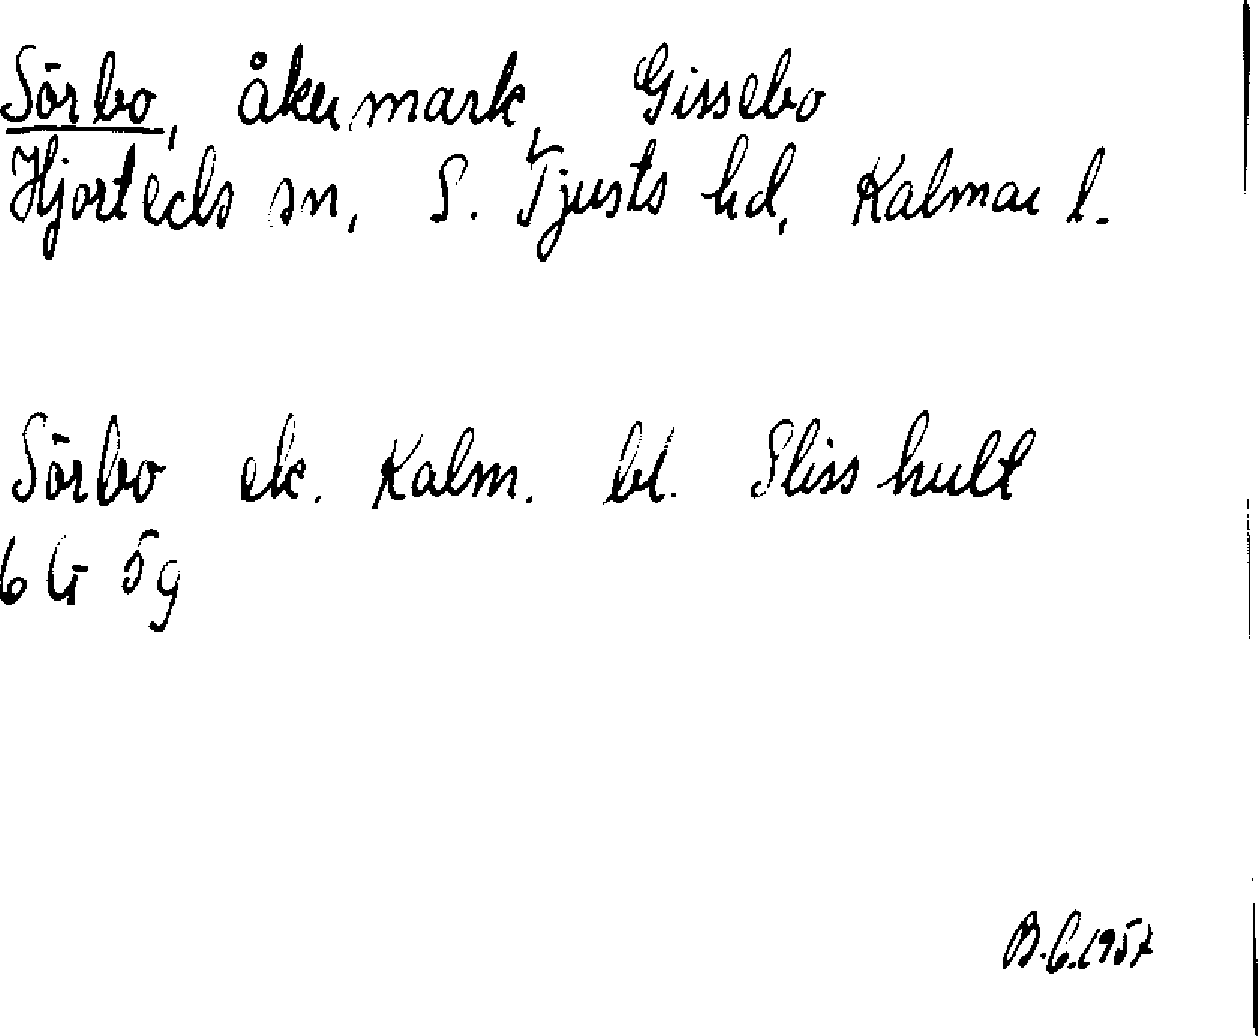 Sörbo, åkermark, Gissebo
Hjorteds sn, S. Tjusts hd, Kalmar l.
Sörbo ek. Kalm. bl. Slisshult
6 G 5g
B.C. 1957